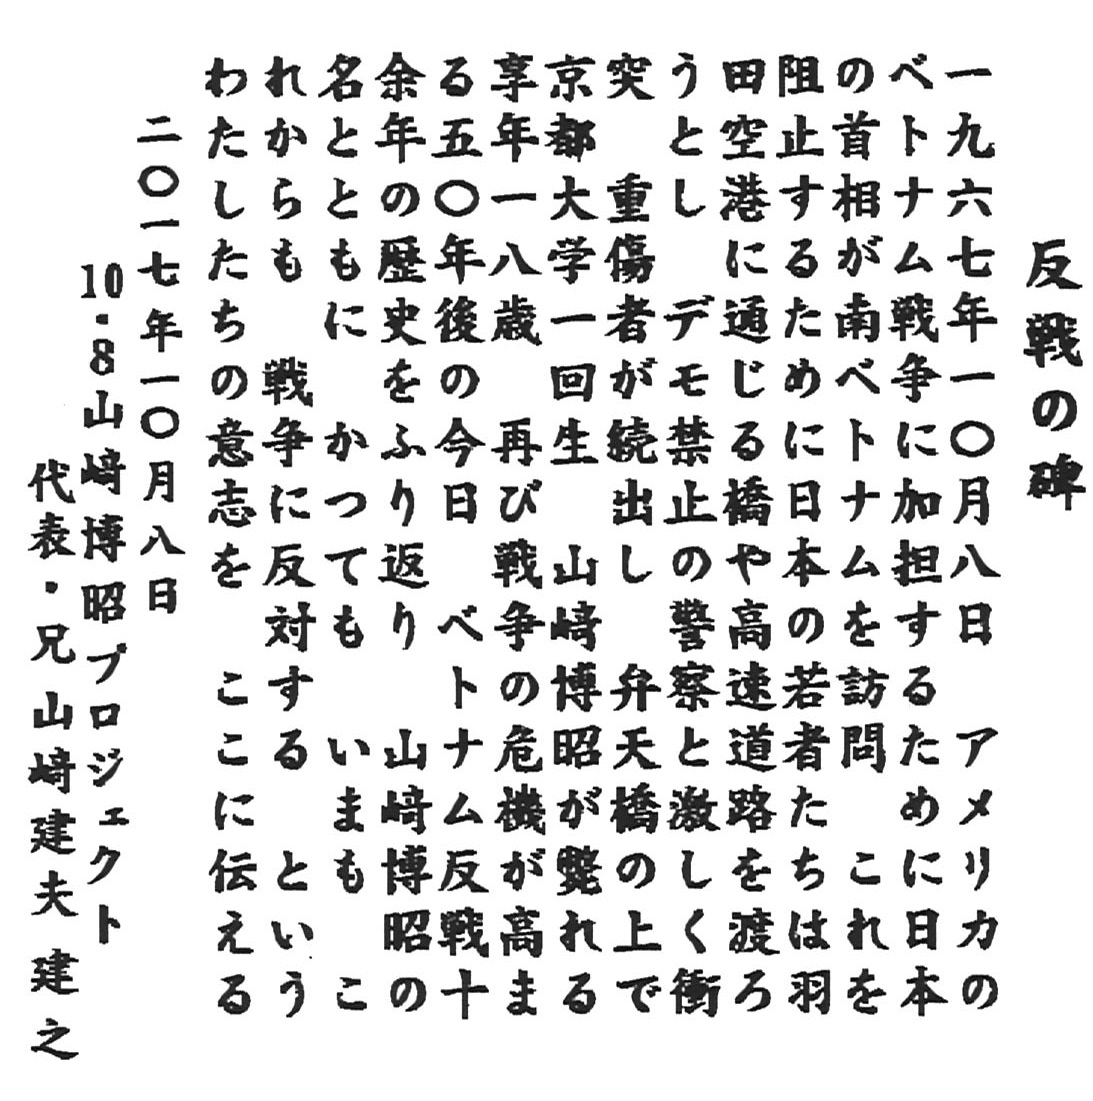 反戦の碑
一九六七年一〇月八日　アメリカの
ベトナム戦争に加担するために日本
の首相が南ベトナムを訪問　これを
阻止するために日本の若者たちは羽
田空港に通じる橋や高速道路を渡ろ
うとし　デモ禁止の警察と激しく衝
突　重傷者が続出し　弁天橋の上で
京都大学一回生　山﨑博昭が斃れる
享年一八歳　再び戦争の危機が高ま
る五〇年後の今日　ベトナム反戦十
余年の歴史をふり返り　山﨑博昭の
名とともに　かつても　いまも　こ
れからも　戦争に反対する　という
わたしたちの意志を　ここに伝える
二〇一七年一〇月八日
10・8山﨑博昭プロジェクト
代表・兄 山﨑建夫 建之